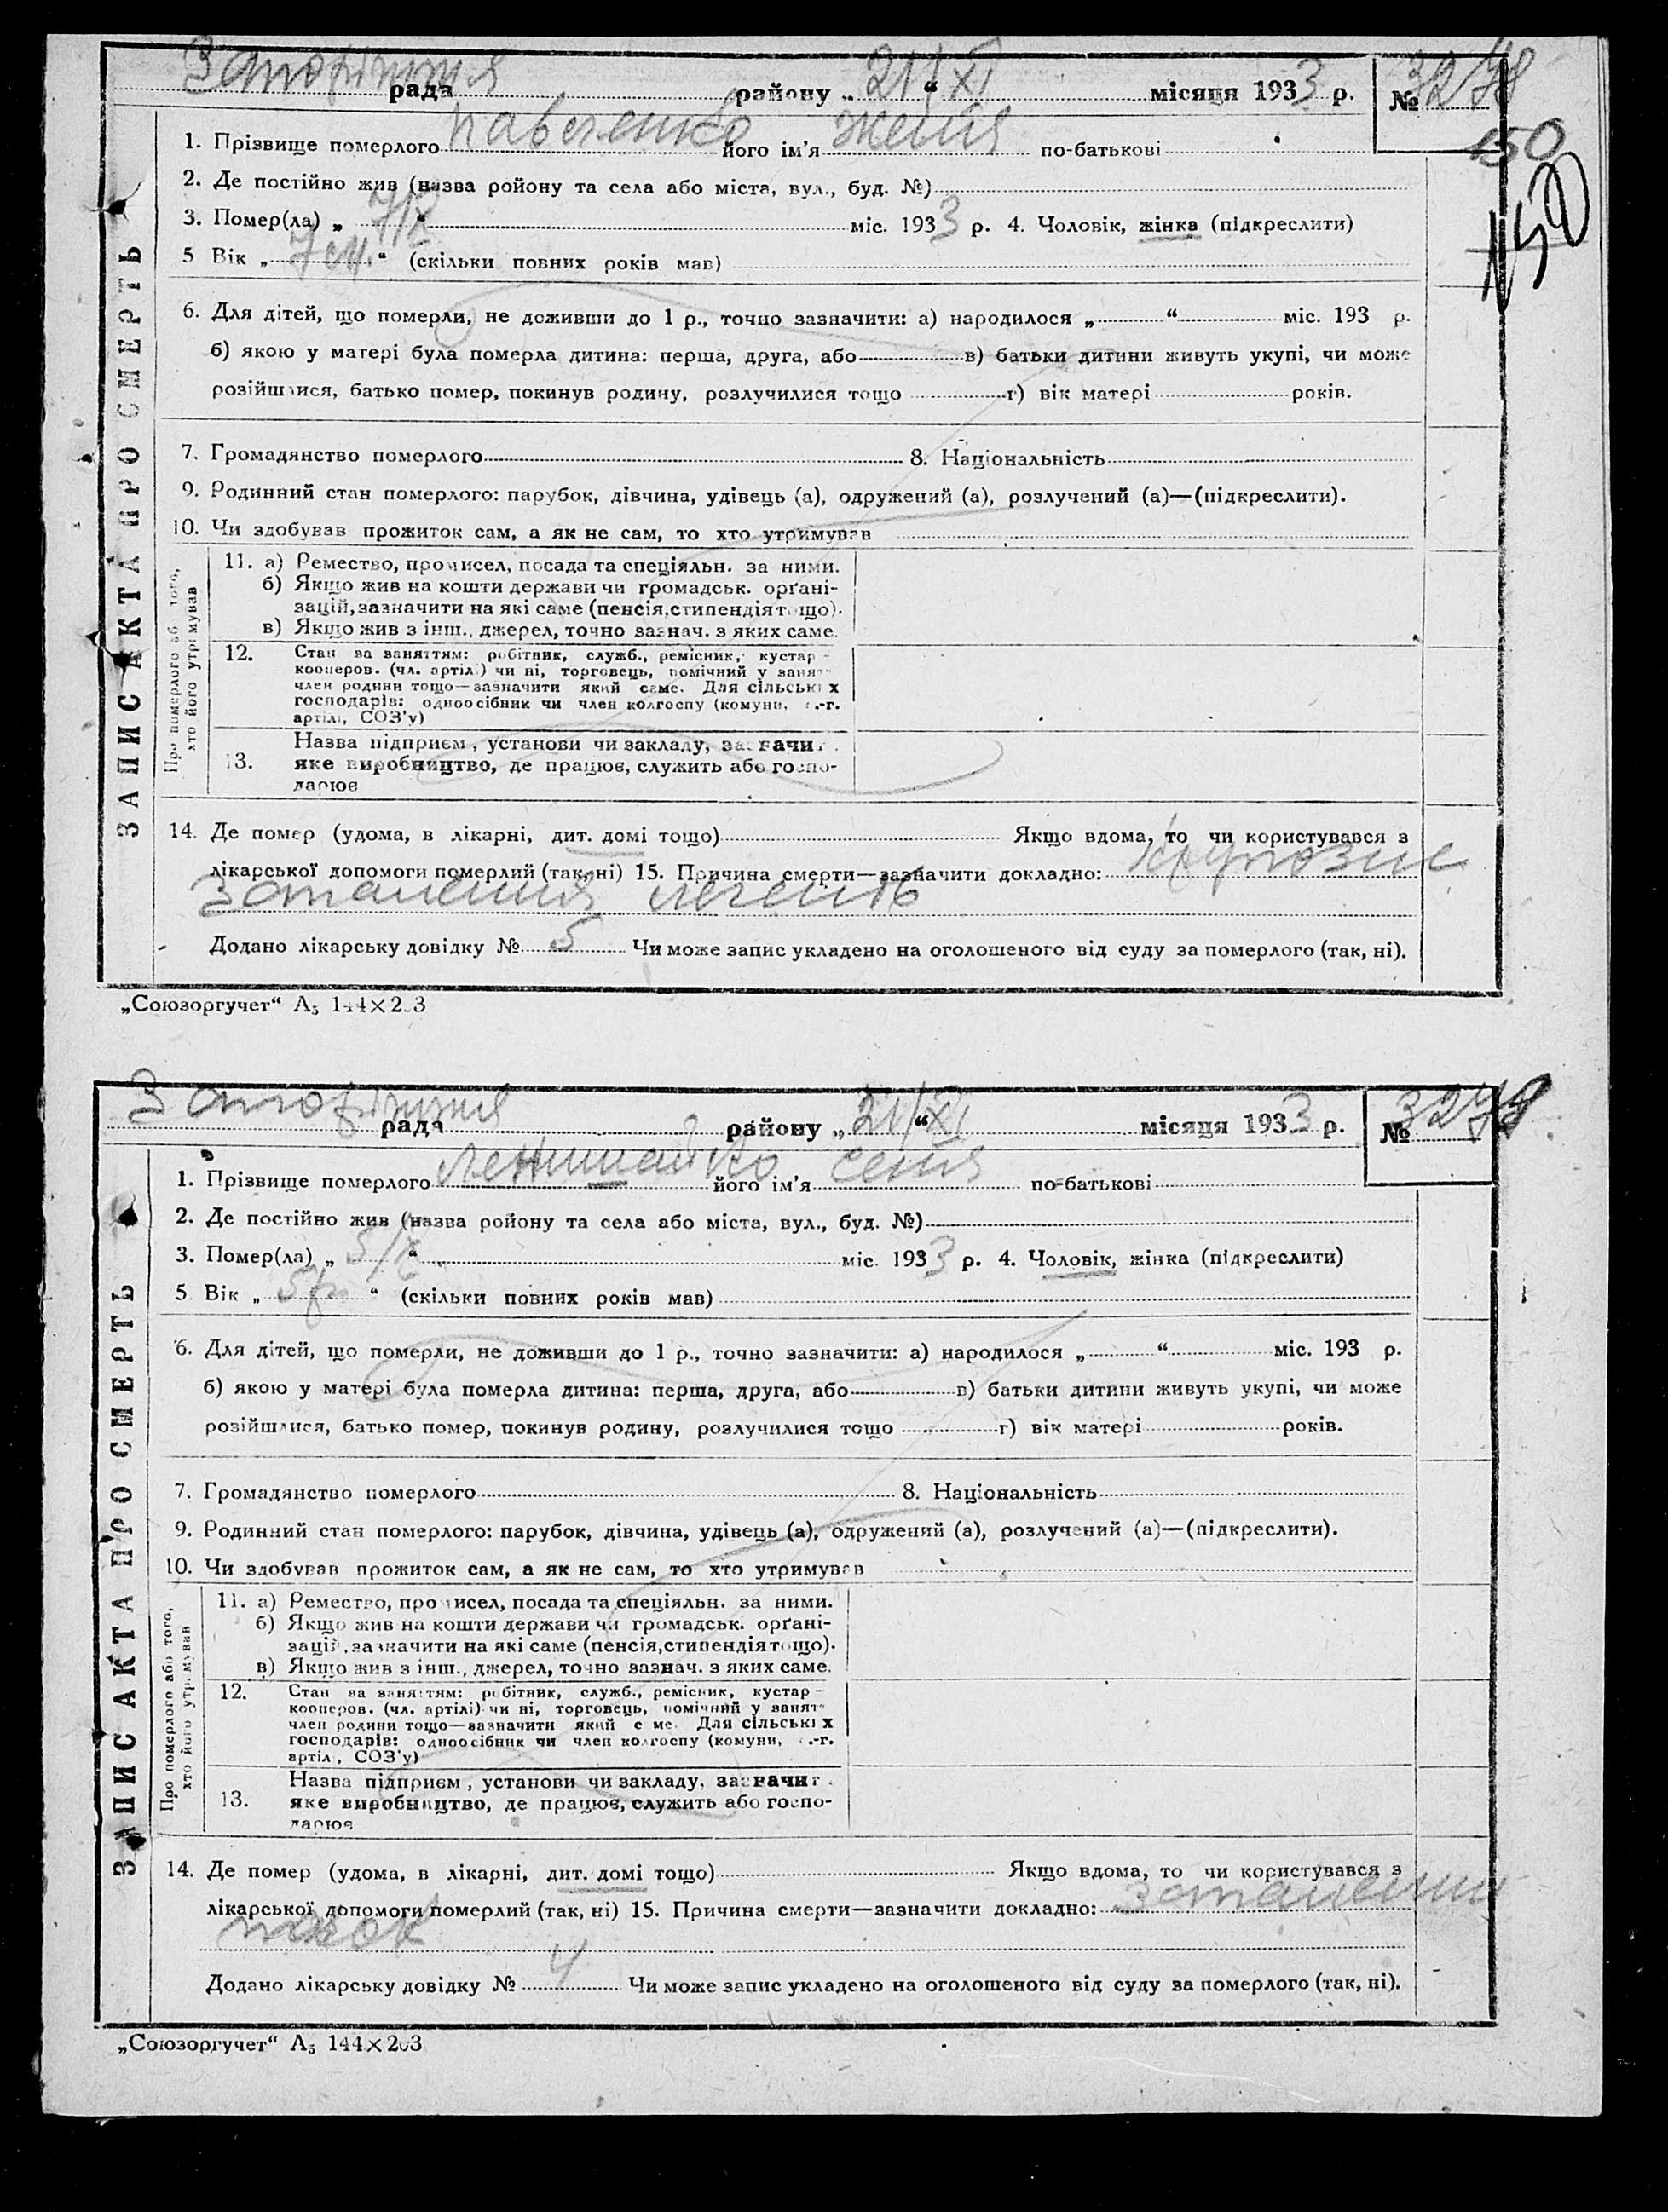 Запоріжжя
рада району „21/XI“ місяця 1933 р. № 3278
150
150
1. Прізвище померлого Павленко його ім'я Женя по-батькові
2. Де постійно жив (назва ройону та села або міста, вул., буд. №)
3. Помер(ла) „ “ міс. 1933 р. 4. Чоловік, жінка (підкреслити)
5 Вік „7 м.“ (скільки повних років мав)
6. Для дітей, що померли, не доживши до 1 р., точно зазначити: а) народилося „ “ міс. 193 р.
б) якою у матері була померла дитина: перша, друга, або в) батьки дитини живуть укупі, чи може
розійшлися, батько помер, покинув родину, розлучилися тощо г) вік матері років.
7. Громадянство померлого 8. Національність
9. Родинний стан померлого: парубок, дівчина, удівець (а), одружений (а), розлучений (а)—(підкреслити).
10. Чи здобував прожиток сам, а як не сам, то хто утримував
ЗАПИС АКТА ПРО СМЕРТЬ
Про померлого або того,
хто його утримував
11. а) Ремество, промисел, посада та спеціяльн. за ними.
б) Якщо жив на кошти держави чи громадськ. орґані-
зацій, зазначити на які саме (пенсія, стипендія тощо).
в) Якщо жив з інш., джерел, точно зазнач. з яких саме.
12. Стан за заняттям: робітник, служб., ремісник, кустар -
кооперов. (чл. артілі) чи ні, торговець, помічний у занят
член родини тощо—зазначити який саме. Для сільських
господарів: одноосібник чи член колгоспу (комуни, .-г.
артілі, СОЗ'у)
13. Назва підприєм, установи чи закладу, зазначит.
яке виробництво, де працює, служить або госпо-
дарює
14. Де помер (удома, в лікарні, дит. домі тощо) Якщо вдома, то чи користувався з
лікарської допомоги померлий (так, ні) 15. Причина смерти—зазначити докладно: Крупозне
Запалення легенів
Додано лікарську довідку № 5 Чи може запис укладено на оголошеного від суду за померлого (так, ні).
„Союзоргучет“ А₅ 144×203
Запоріжжя
рада району „21/XI“ місяця 1933 р. №
1. Прізвище померлого його ім'я Сеня по-батькові
2. Де постійно жив (назва ройону та села або міста, вул., буд. №)
3. Помер(ла) „ “ міс. 1933 р. 4. Чоловік, жінка (підкреслити)
5 Вік „ “ (скільки повних років мав)
6. Для дітей, що померли, не доживши до 1 р., точно зазначити: а) народилося „ “ міс. 193 р.
б) якою у матері була померла дитина: перша, друга, або в) батьки дитини живуть укупі, чи може
розійшлися, батько помер, покинув родину, розлучилися тощо г) вік матері років.
7. Громадянство померлого 8. Національність
9. Родинний стан померлого: парубок, дівчина, удівець (а), одружений (а), розлучений (а)—(підкреслити).
10. Чи здобував прожиток сам, а як не сам, то хто утримував
ЗАПИС АКТА ПРО СМЕРТЬ
Про померлого або того,
хто його утримував
11. а) Ремество, промисел, посада та спеціяльн. за ними.
б) Якщо жив на кошти держави чи громадськ. орґані-
зацій, зазначити на які саме (пенсія, стипендія тощо).
в) Якщо жив з інш., джерел, точно зазнач. з яких саме.
12. Стан за заняттям: робітник, служб., ремісник, кустар -
кооперов. (чл. артілі) чи ні, торговець, помічний у занят
член родини тощо—зазначити який саме. Для сільських
господарів: одноосібник чи член колгоспу (комуни, .-г.
артіл, СОЗ'у)
13. Назва підприєм, установи чи закладу, зазначит.
яке виробництво, де працює, служить або госпо-
дарює
14. Де помер (удома, в лікарні, дит. домі тощо) Якщо вдома, то чи користувався з
лікарської допомоги померлий (так, ні) 15. Причина смерти—зазначити докладно: Запалення
нирок
Додано лікарську довідку № 4 Чи може запис укладено на оголошеного від суду за померлого (так, ні).
„Союзоргучет“ А₅ 144×203